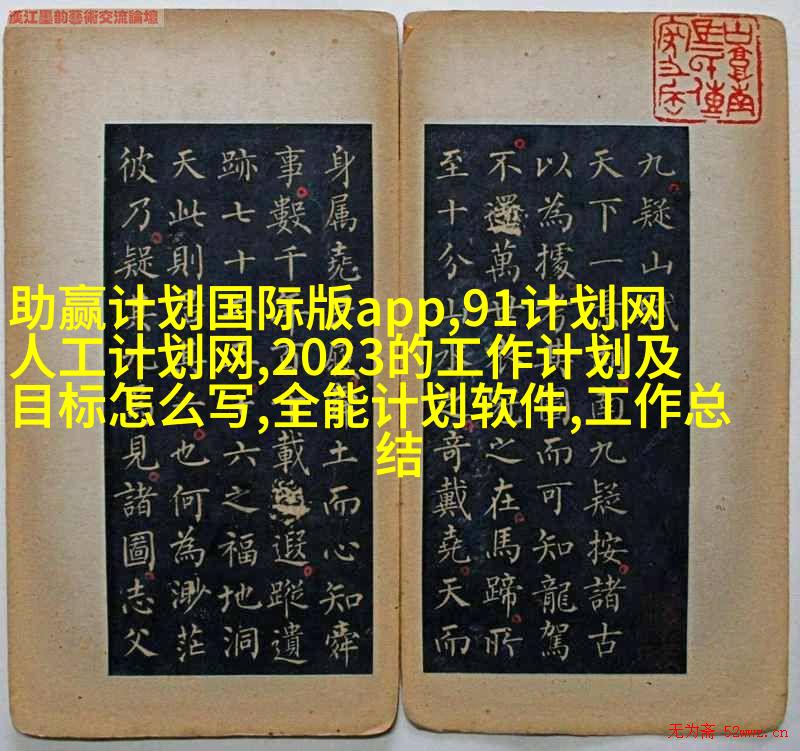 漢江墨韵藝術交流論壇
九疑山賦
天下一面九疑按諸古
以為據其間而可知龍駕
不還萬世之在馬蹄所
至十分山水之奇戴堯天而
身属堯土而心知舜
事數千載遐蹤遺
跡七十六之福地洞
天此則也何為渺茫
彼乃疑其見諸圖志父
助赢计划国际版app,91计划网
人工计划网,2023的工作计划及
目标怎么写,全能计划软件,工作总
结
无为斋 52wwz.cn